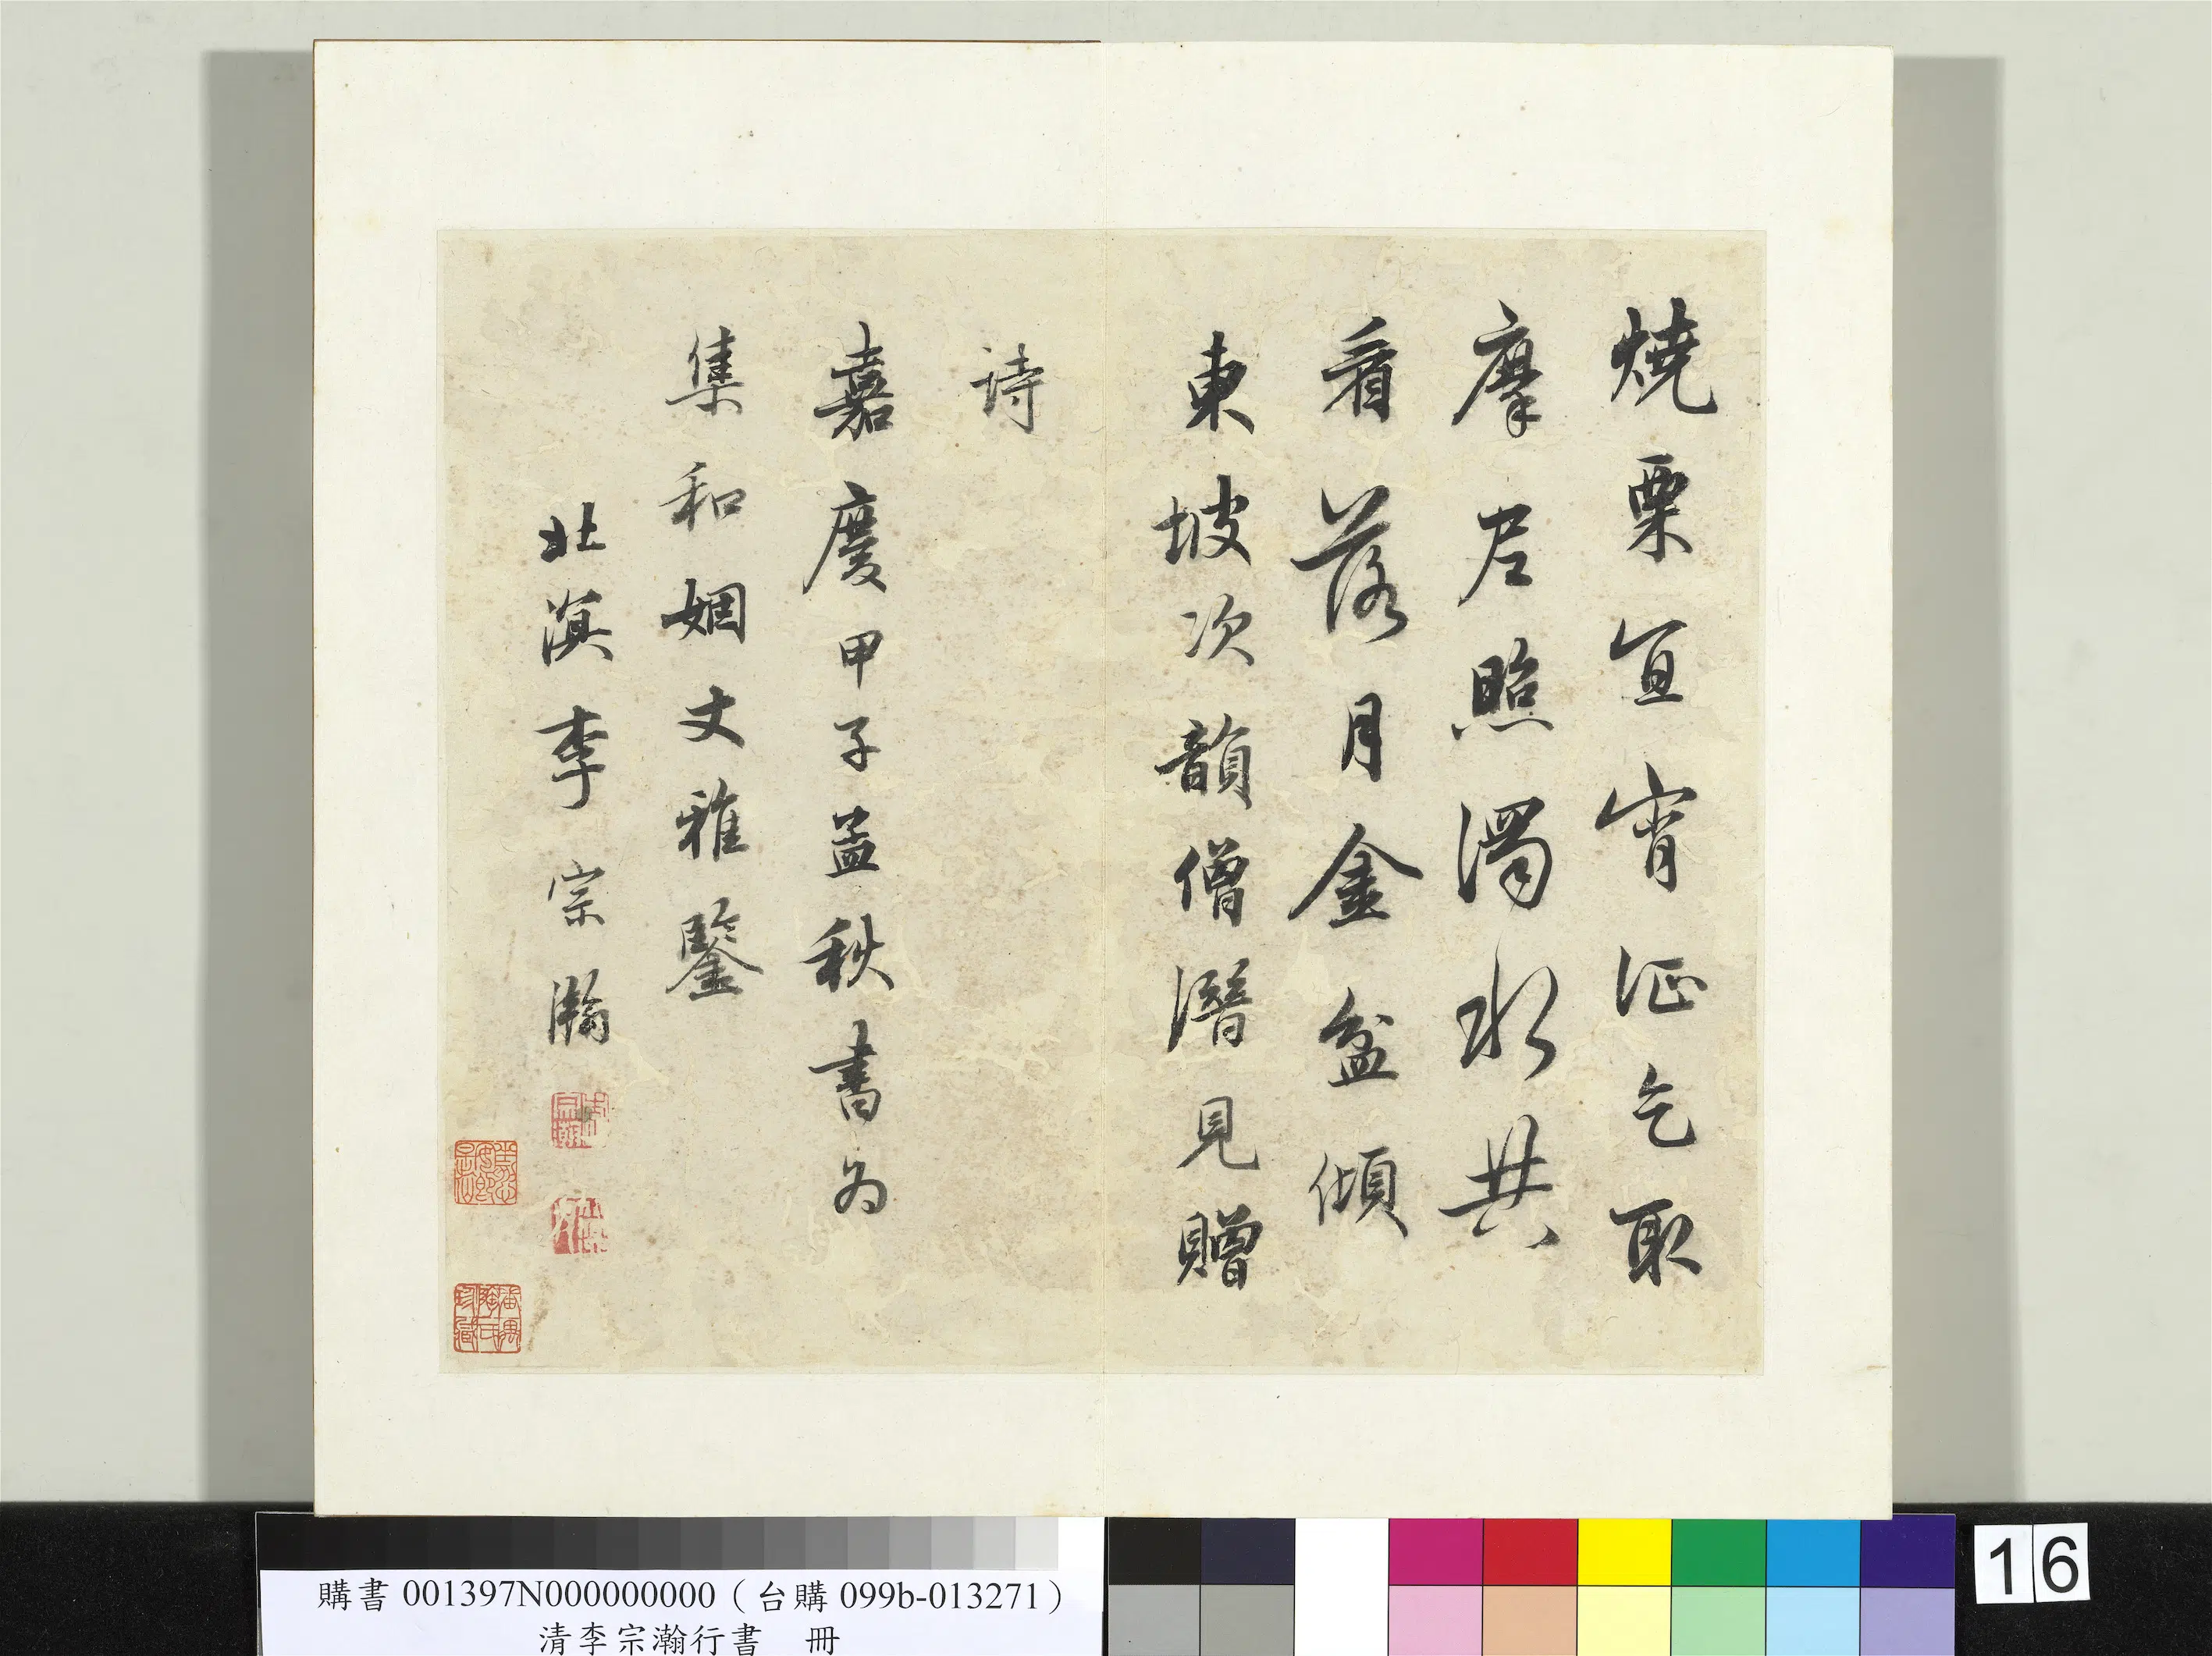 燒栗宜宵征乞取
摩尼照濁水共
看落月金盆傾
東坡次韻僧潛見贈
詩
嘉慶甲子孟秋書為
集和姻丈雅鑒
北溟李宗瀚
番禺陳氏珍藏
購書 001397N000000000（台購 099b-013271）
清李宗瀚行書 冊
16